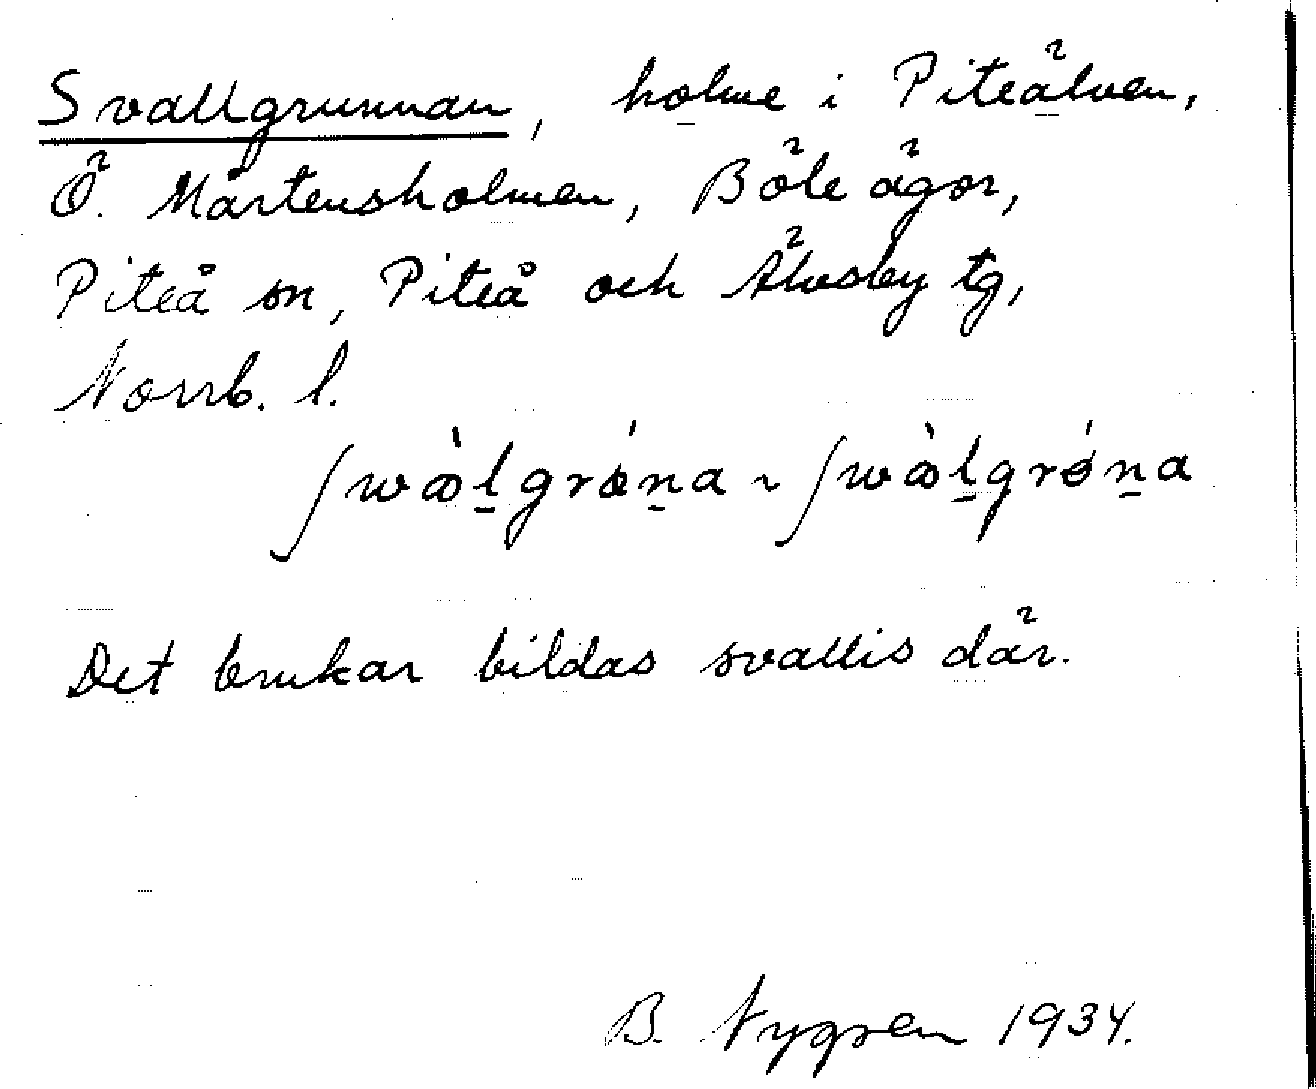 Svallgrunnan, holme i Piteälven,
Ö. Mårtensholmen, Böle ägor,
Piteå sn, Piteå och Älvsby tg,
Norrb. l.
ʃwòḷgrǿṇa ~ ʃwòḷgrǿṇa
Det brukar bildas svallis där.
B. Nygren 1934.